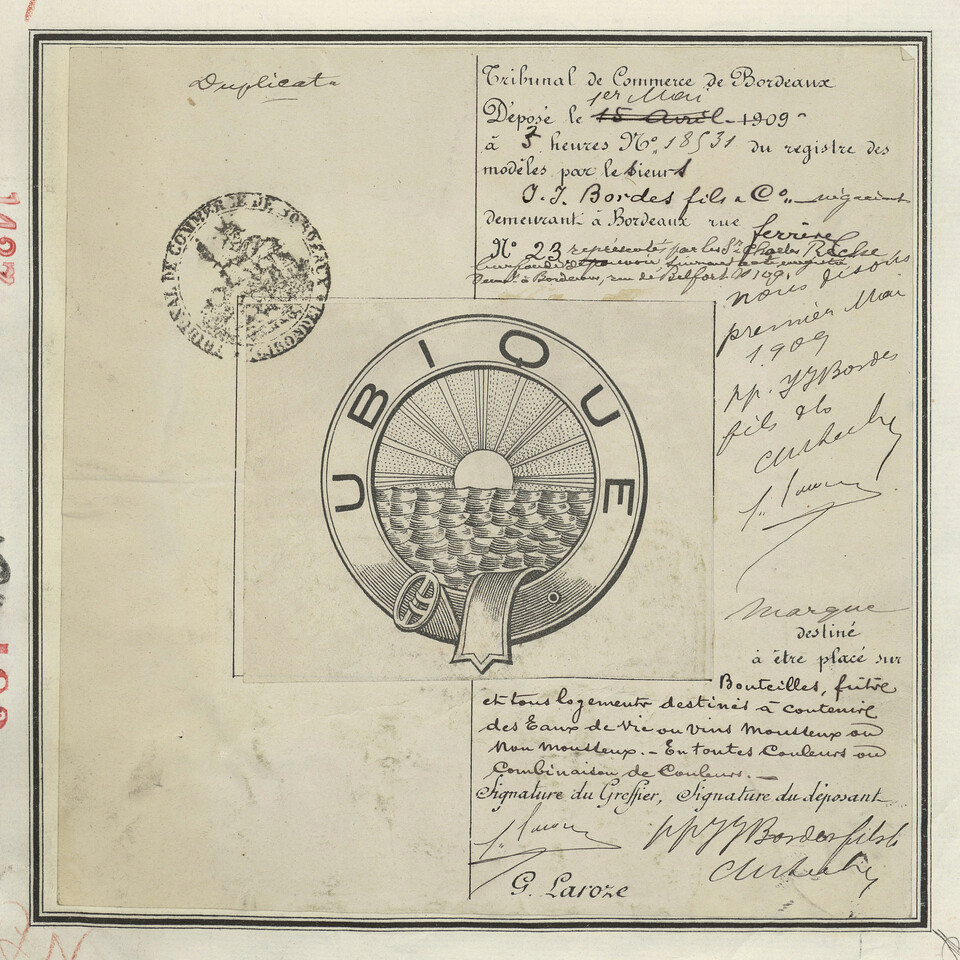 Duplicata
Tribunal de Commerce de Bordeaux
1er Mai
Déposé le 15 Avril 1909
à heures No. 18531 du registre des
modèles par le Sieurs
J. J. Bordes fils & Co. négociant
demeurant à Bordeaux rue ferrère
No 23 représenté par le Sr. Charles
Bordeaux, rue de Belfort No 109.
nous disons
premier Mai
1909
pp. JJ Bordes
fils & Co
TRIBUNAL DE COMMERCE DE BORDEAUX
UBIQUE
Marque
destiné
à être placé sur
Bouteilles, futs
et tous logements destinés à contenir
des Eaux de Vie ou vins Mousseux ou
Non Mousseux. - En toutes Couleurs ou
Combinaison de Couleurs. -
Signature du Greffier, Signature du déposant
pp JJ Bordes fils &
G. Laroze